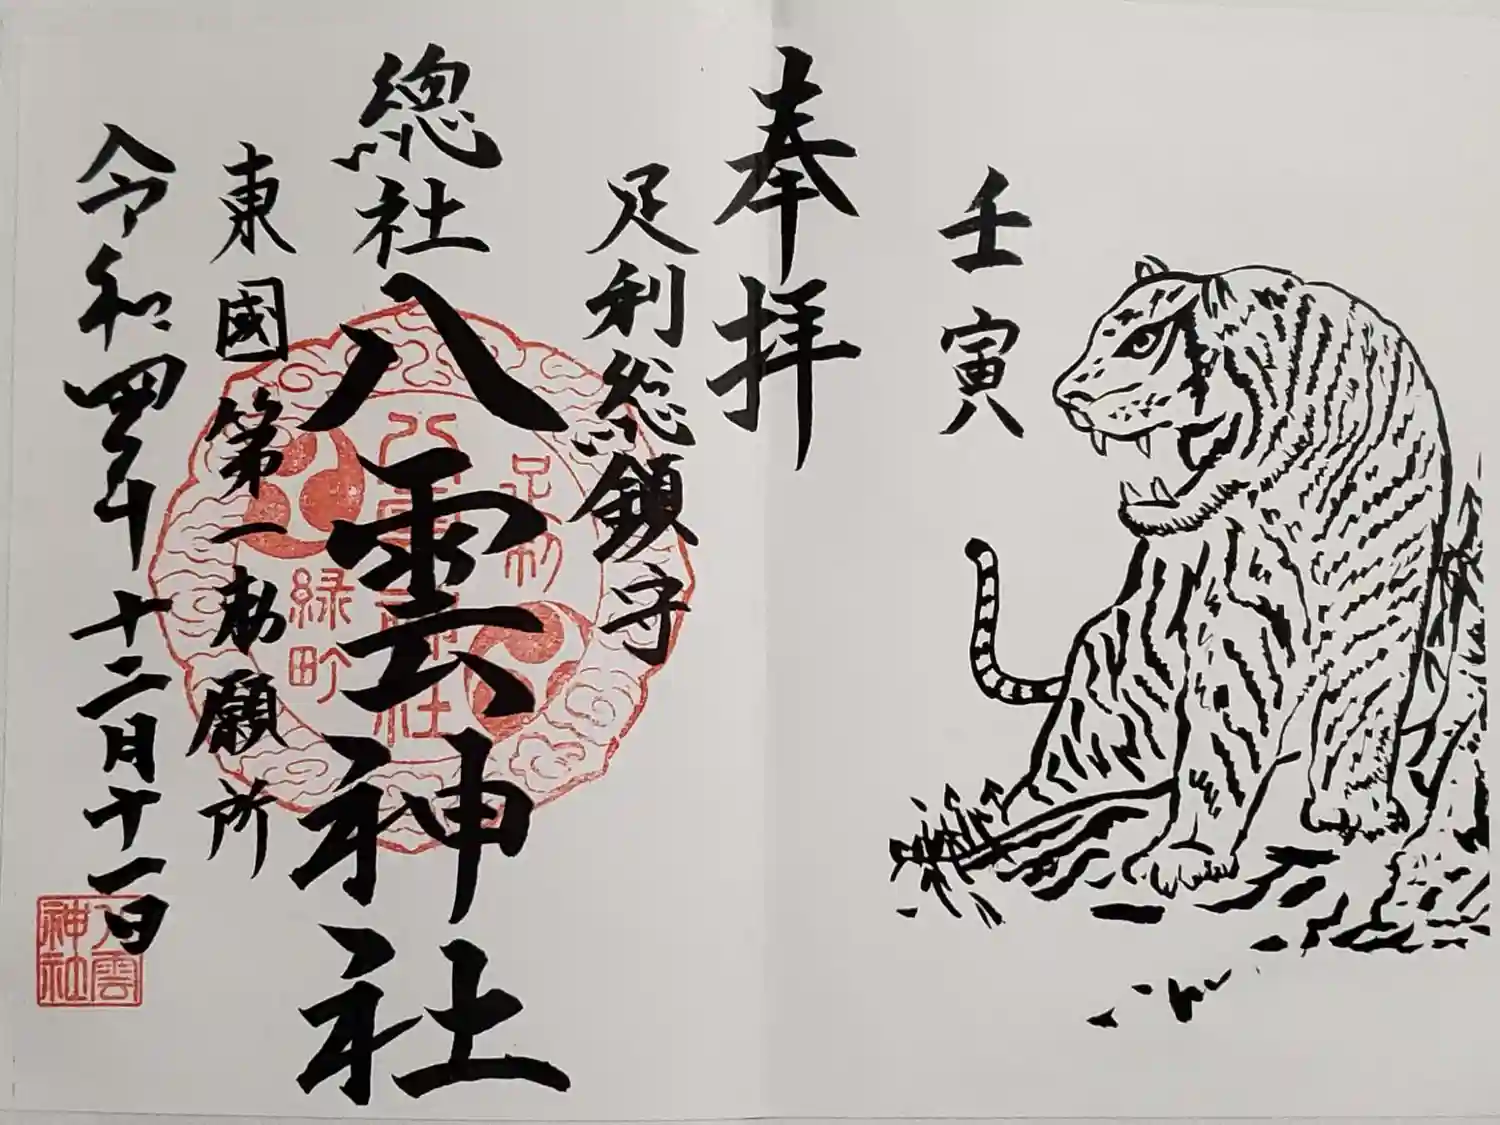 壬寅
奉拝
足利総鎮守
總社八雲神社
東國第一勅願所
令和四年十二月十一日
足利
八雲神社
緑町
八雲
神社